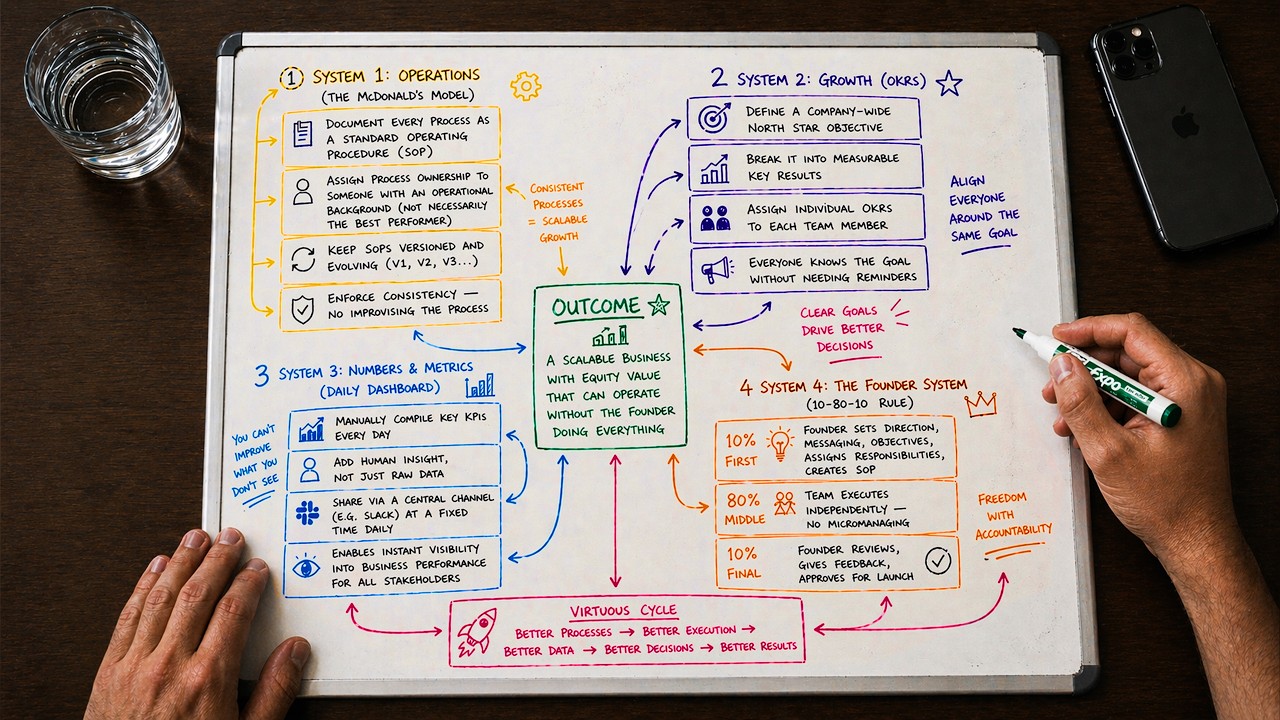 1 SYSTEM 1: OPERATIONS
(THE MCDONALD'S MODEL)
DOCUMENT EVERY PROCESS AS
A STANDARD OPERATING
PROCEDURE (SOP)
ASSIGN PROCESS OWNERSHIP TO
SOMEONE WITH AN OPERATIONAL
BACKGROUND (NOT NECESSARILY
THE BEST PERFORMER)
KEEP SOPS VERSIONED AND
EVOLVING (V1, V2, V3...)
ENFORCE CONSISTENCY —
NO IMPROVISING THE PROCESS
CONSISTENT
PROCESSES
= SCALABLE
GROWTH
2 SYSTEM 2: GROWTH (OKRS)
DEFINE A COMPANY-WIDE
NORTH STAR OBJECTIVE
BREAK IT INTO MEASURABLE
KEY RESULTS
ASSIGN INDIVIDUAL OKRS
TO EACH TEAM MEMBER
EVERYONE KNOWS THE GOAL
WITHOUT NEEDING REMINDERS
ALIGN
EVERYONE
AROUND THE
SAME GOAL
CLEAR GOALS
DRIVE BETTER
DECISIONS
OUTCOME
A SCALABLE BUSINESS
WITH EQUITY VALUE
THAT CAN OPERATE
WITHOUT THE FOUNDER
DOING EVERYTHING
3 SYSTEM 3: NUMBERS & METRICS
(DAILY DASHBOARD)
MANUALLY COMPILE KEY KPIS
EVERY DAY
ADD HUMAN INSIGHT,
NOT JUST RAW DATA
SHARE VIA A CENTRAL CHANNEL
(E.G. SLACK) AT A FIXED
TIME DAILY
ENABLES INSTANT VISIBILITY
INTO BUSINESS PERFORMANCE
FOR ALL STAKEHOLDERS
YOU CAN'T
IMPROVE
WHAT YOU
DON'T SEE
4 SYSTEM 4: THE FOUNDER SYSTEM
(10-80-10 RULE)
10%
FIRST
FOUNDER SETS DIRECTION,
MESSAGING, OBJECTIVES,
ASSIGNS RESPONSIBILITIES,
CREATES SOP
80%
MIDDLE
TEAM EXECUTES
INDEPENDENTLY —
NO MICROMANAGING
10%
FINAL
FOUNDER REVIEWS,
GIVES FEEDBACK,
APPROVES FOR LAUNCH
FREEDOM
WITH
ACCOUNTABILITY
VIRTUOUS CYCLE
BETTER PROCESSES → BETTER EXECUTION →
BETTER DATA → BETTER DECISIONS → BETTER RESULTS
EXPO